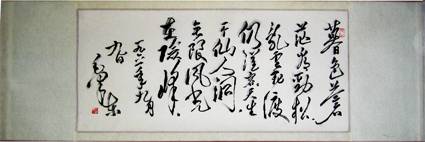 暮色蒼
茫看勁松
亂雲飛渡
仍從容天生
一个仙人洞
無限風光
在險峰
一九六一年九月
九日
毛澤東